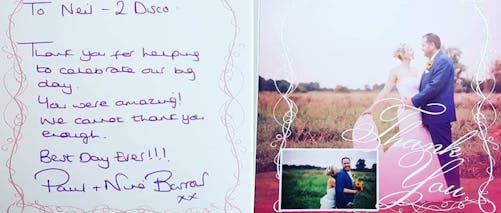 To Neil - 2 Disco
Thank you for helping
to celebrate our big
day
You were amazing!
We cannot thank you
enough.
Best Day Ever!!!
Paul +
xx
Thank
You